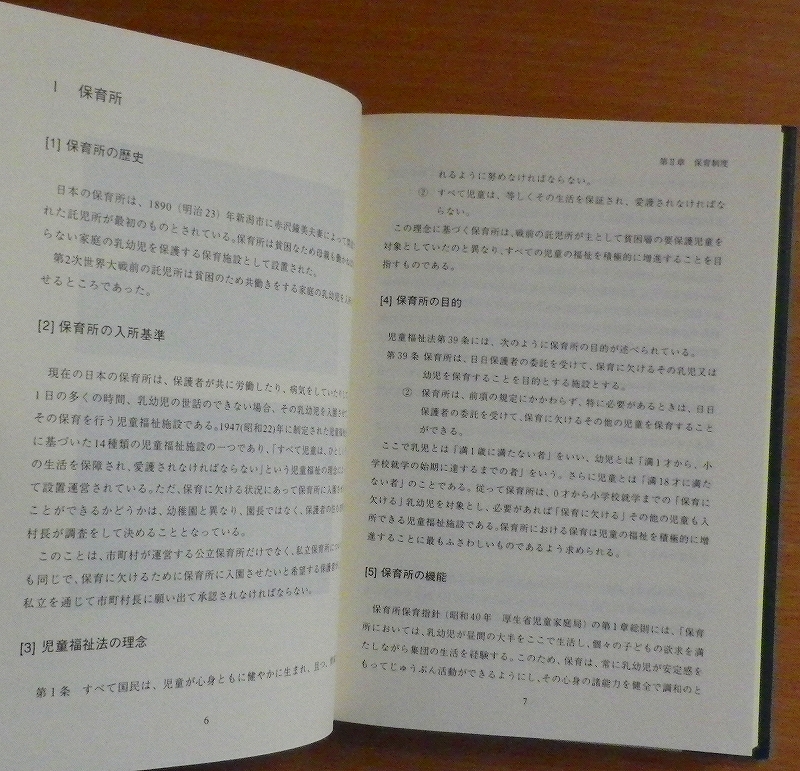 I 保育所
[1] 保育所の歴史
日本の保育所は、1890(明治23)年新潟市に赤沢鐘美夫妻によって
れた託児所が最初のものとされている。保育所は貧困なため母親も働かな
らない家庭の乳幼児を保護する保育施設として設置された。
第2次世界大戦前の託児所は貧困のため共働きをする家庭の乳幼児を入所
せるところであった。
[2] 保育所の入所基準
現在の日本の保育所は、保護者が共に労働したり、病気をしていたり
1日の多くの時間、乳幼児の世話のできない場合、その乳幼児を入園させて
その保育を行う児童福祉施設である。1947(昭和22)年に制定された児童福祉
に基づいた14種類の児童福祉施設の一つであり、「すべて児童は、ひとし
の生活を保障され、愛護されなければならない」という児童福祉の理念に
て設置運営されている。ただ、保育に欠ける状況にあって保育所に入園
ことができるかどうかは、幼稚園と異なり、園長ではなく、保護者の住
村長が調査をして決めることとなっている。
このことは、市町村が運営する公立保育所だけでなく、私立保育所につ
も同じで、保育に欠けるために保育所に入園させたいと希望する保護者
私立を通じて市町村長に願い出て承認されなければならない。
[3] 児童福祉法の理念
第1条 すべて国民は、児童が心身ともに健やかに生まれ、且つ、
6
第II章 保育制度
れるように努めなければならない。
② すべて児童は、等しくその生活を保証され、愛護されなければな
らない。
この理念に基づく保育所は、戦前の託児所が主として貧困層の要保護児童を
対象としていたのと異なり、すべての児童の福祉を積極的に増進することを目
指すものである。
[4] 保育所の目的
児童福祉法第39条には、次のように保育所の目的が述べられている。
第39条 保育所は、日日保護者の委託を受けて、保育に欠けるその乳児又は
幼児を保育することを目的とする施設とする。
② 保育所は、前項の規定にかかわらず、特に必要があるときは、日日
保護者の委託を受けて、保育に欠けるその他の児童を保育すること
ができる。
ここで乳児とは「満1歳に満たない者」をいい、幼児とは「満1才から、小
学校就学の始期に達するまでの者」をいう。さらに児童とは「満18才に満た
ない者」のことである。従って保育所は、0才から小学校就学までの「保育に
欠ける」乳幼児を対象とし、必要があれば「保育に欠ける」その他の児童も入
所できる児童福祉施設である。保育所における保育は児童の福祉を積極的に増
進することに最もふさわしいものであるよう求められる。
[5] 保育所の機能
保育所保育指針(昭和40年 厚生省児童家庭局)の第1章総則には、「保育
所においては、乳幼児が昼間の大半をここで生活し、個々の子どもの欲求を満
たしながら集団の生活を経験する。このため、保育は、常に乳幼児が安定感を
もってじゅうぶん活動ができるようにし、その心身の諸能力を健全で調和のと
7